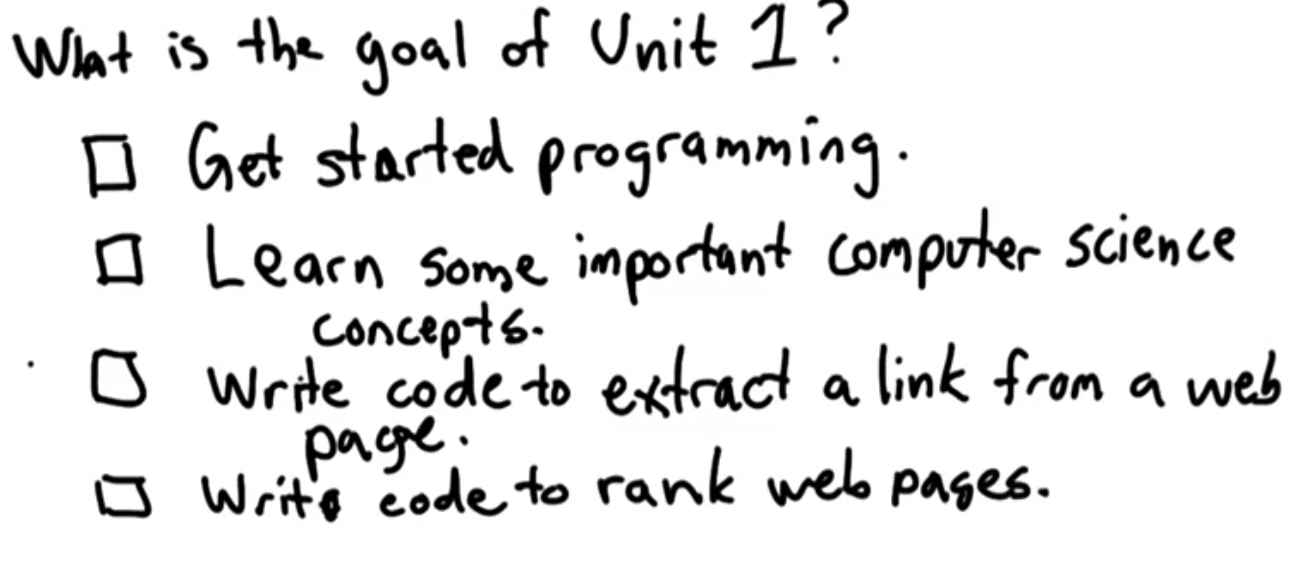 What is the goal of Unit 1?
Get started programming.
Learn some important computer science
concepts.
Write code to extract a link from a web
page.
Write code to rank web pages.